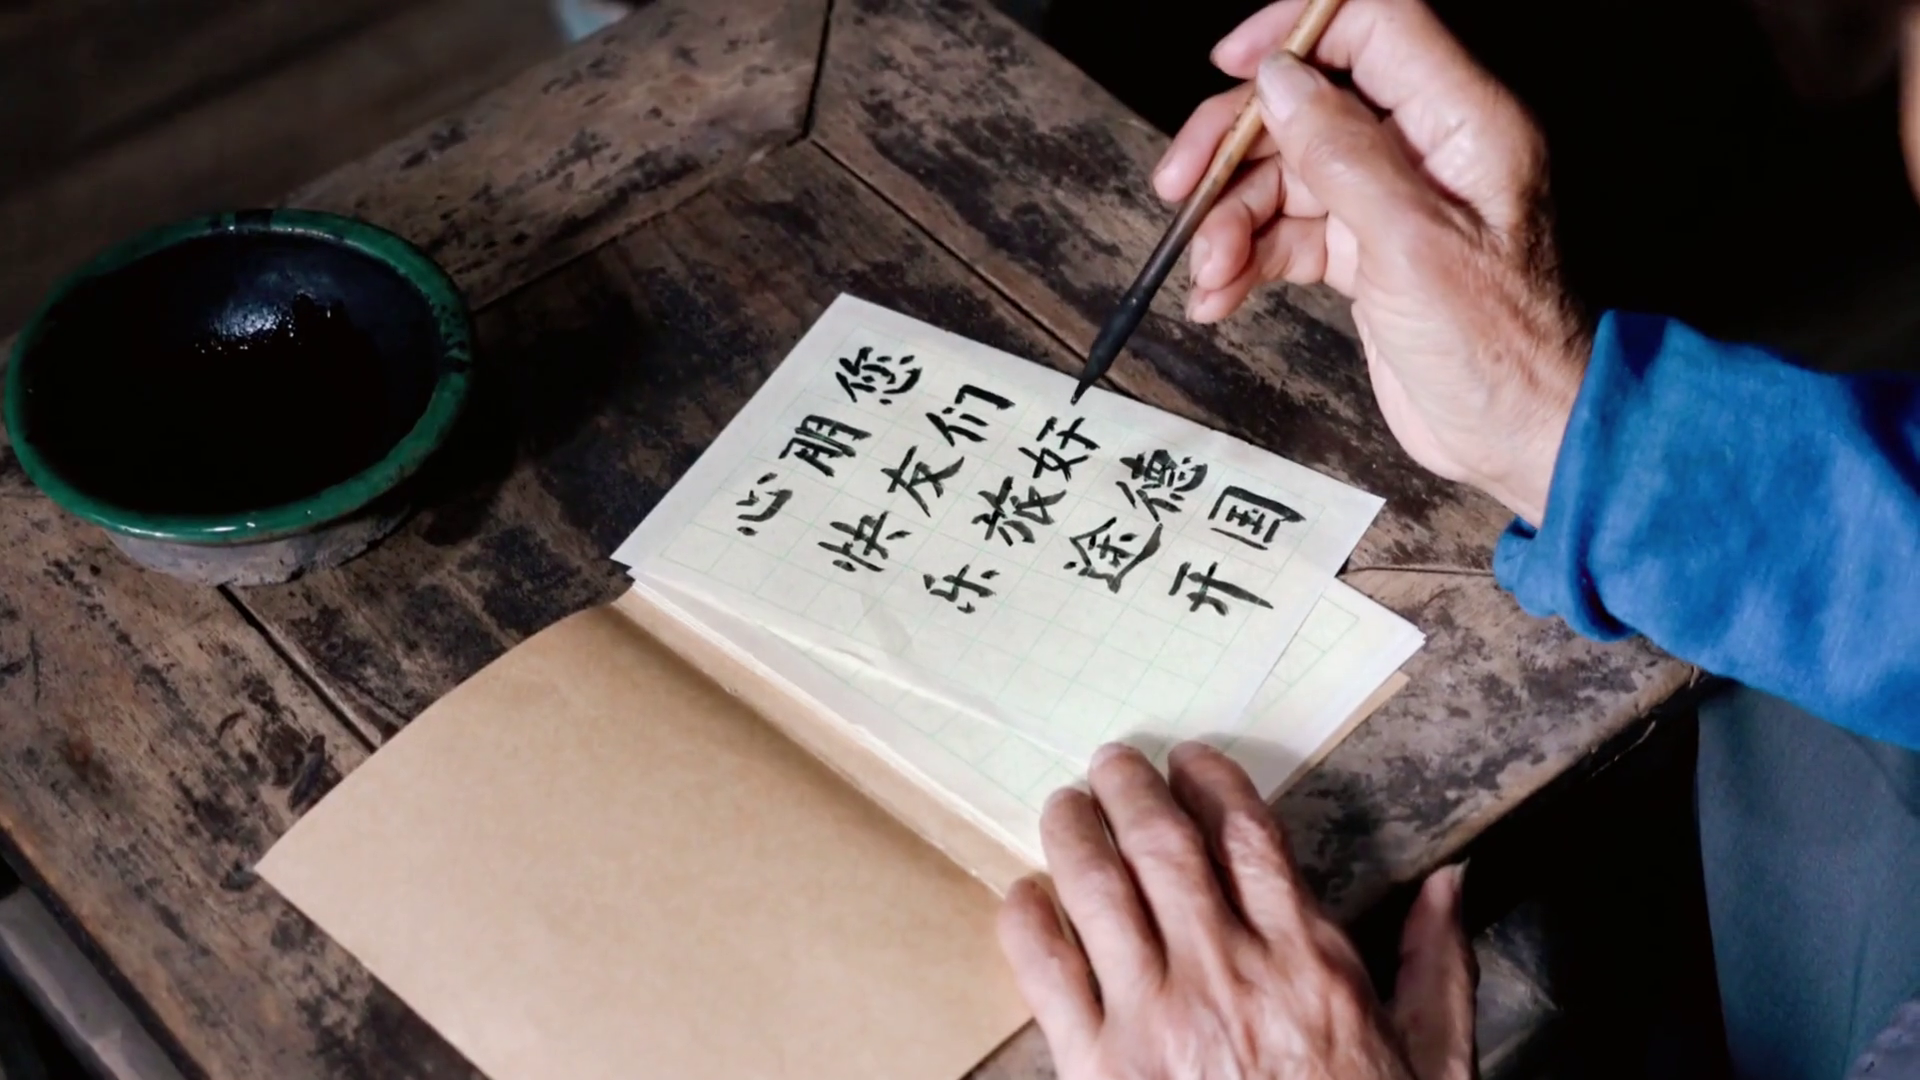 您们好德国
朋友旅途开
心快乐